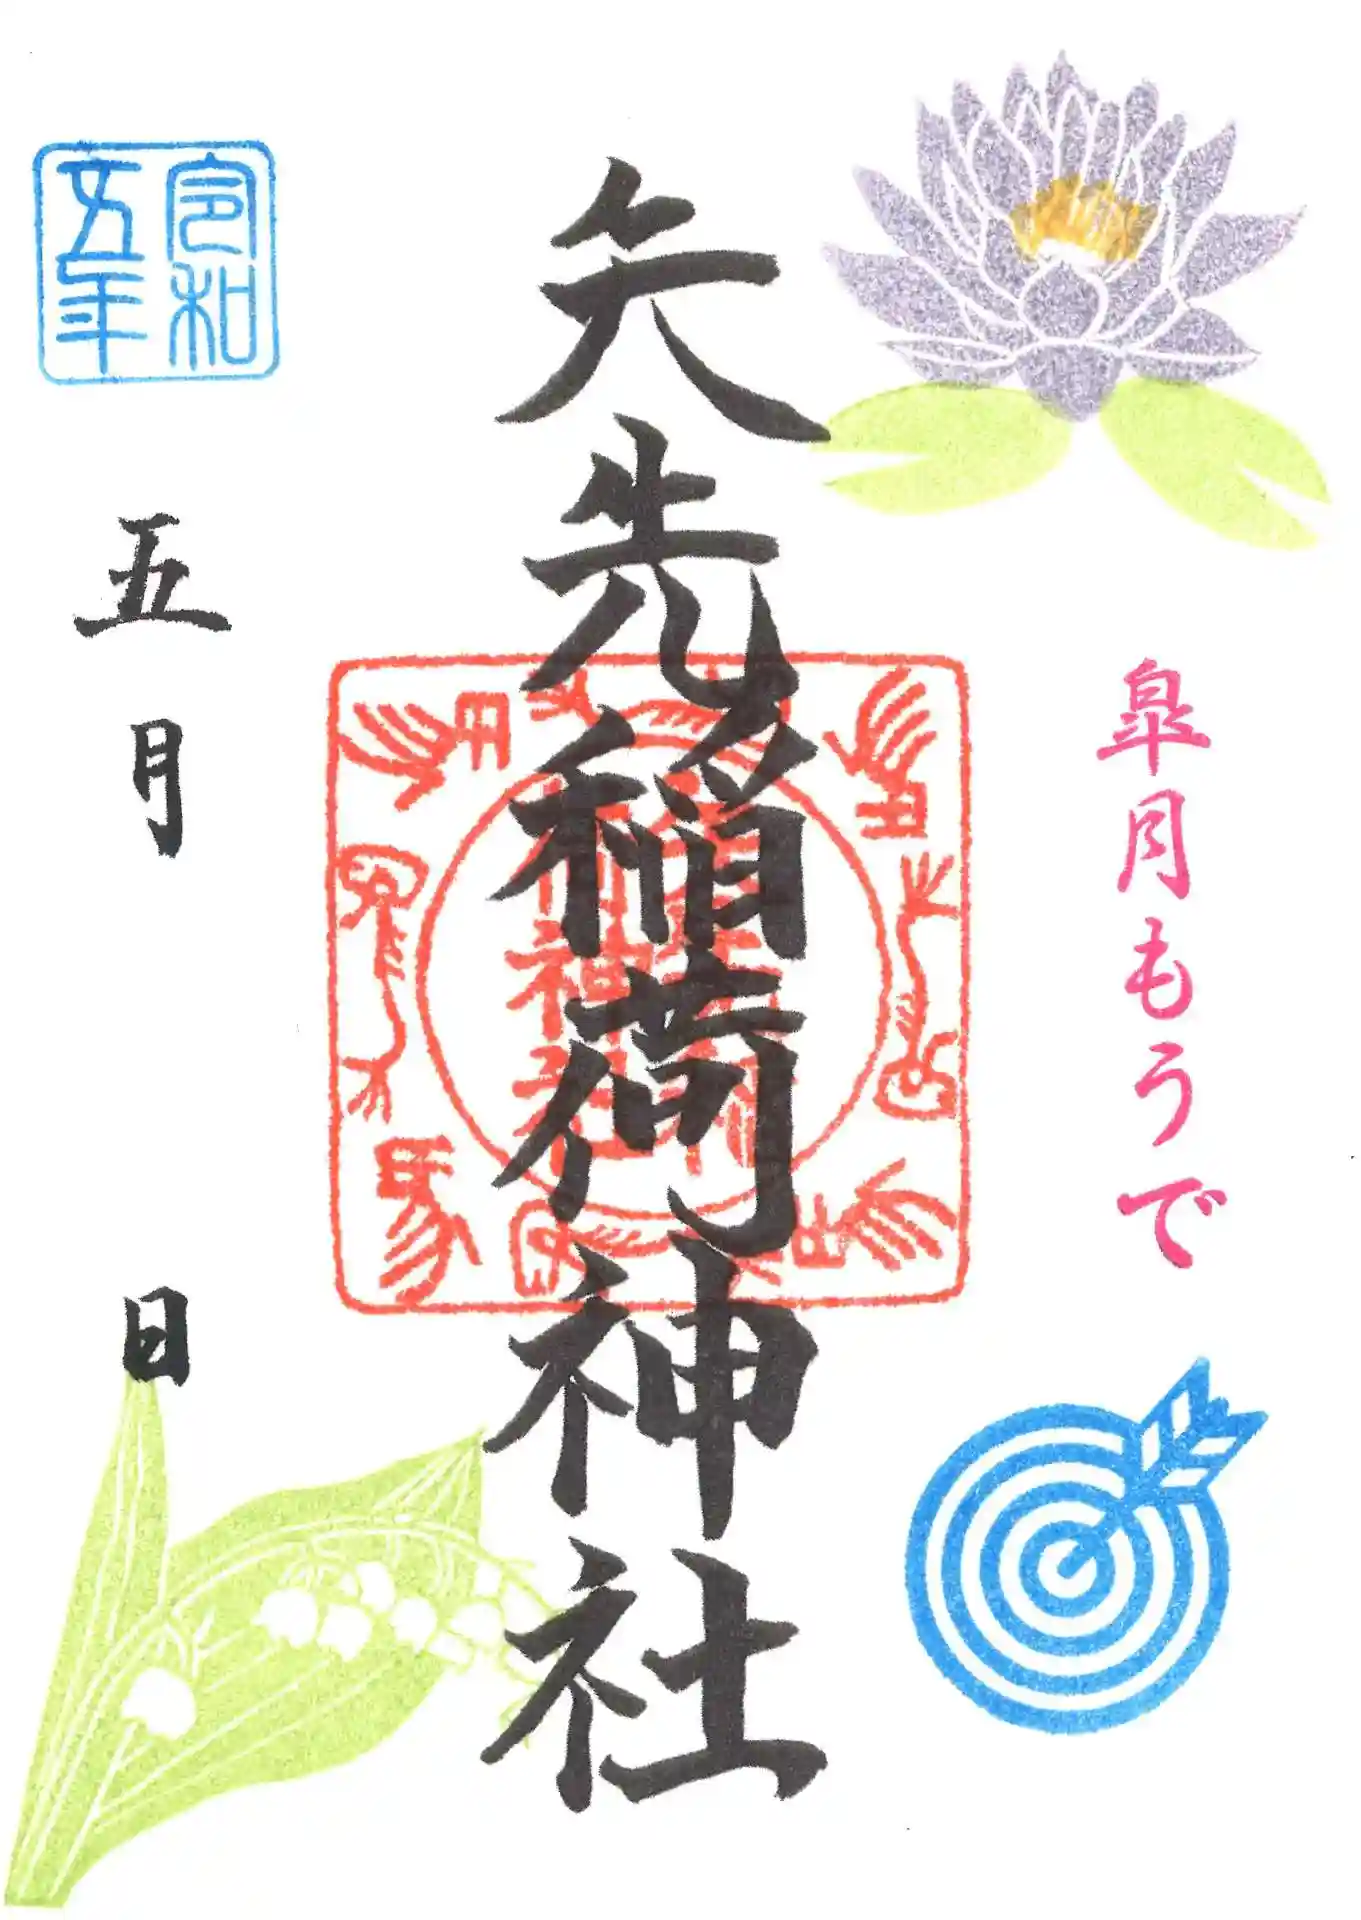 皐月もうで
矢先稲荷神社
令和
五年
五月
日